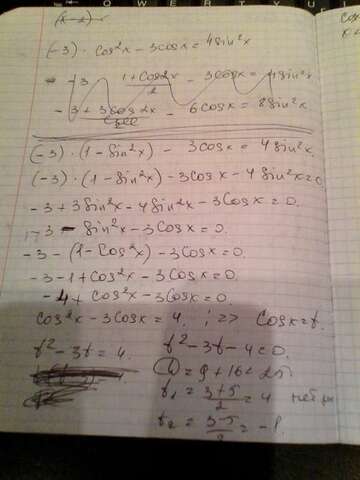 (-3) · cos²x - 3cosx = 4sin²x
-3 1+cos2x/2 - 3cosx = 4sin²x
-3+3cos2x - 6cosx = 8sin²x
(-3) · (1-sin²x) - 3cosx = 4sin²x
(-3) · (1-sin²x) - 3cosx - 4sin²x=0
-3+3sin²x-4sin²x-3cosx=0.
-3 - sin²x-3cosx=0.
-3 - (1-cos²x)-3cosx=0.
-3-1+cos²x-3cosx=0.
-4+cos²x-3cosx=0.
cos²x-3cosx=4. ; => cosx=t.
t²-3t=4. t²-3t-4=0.
D=9+16=25
t₁=3+5/2=4 нет
t₂=3-5/2=-1.